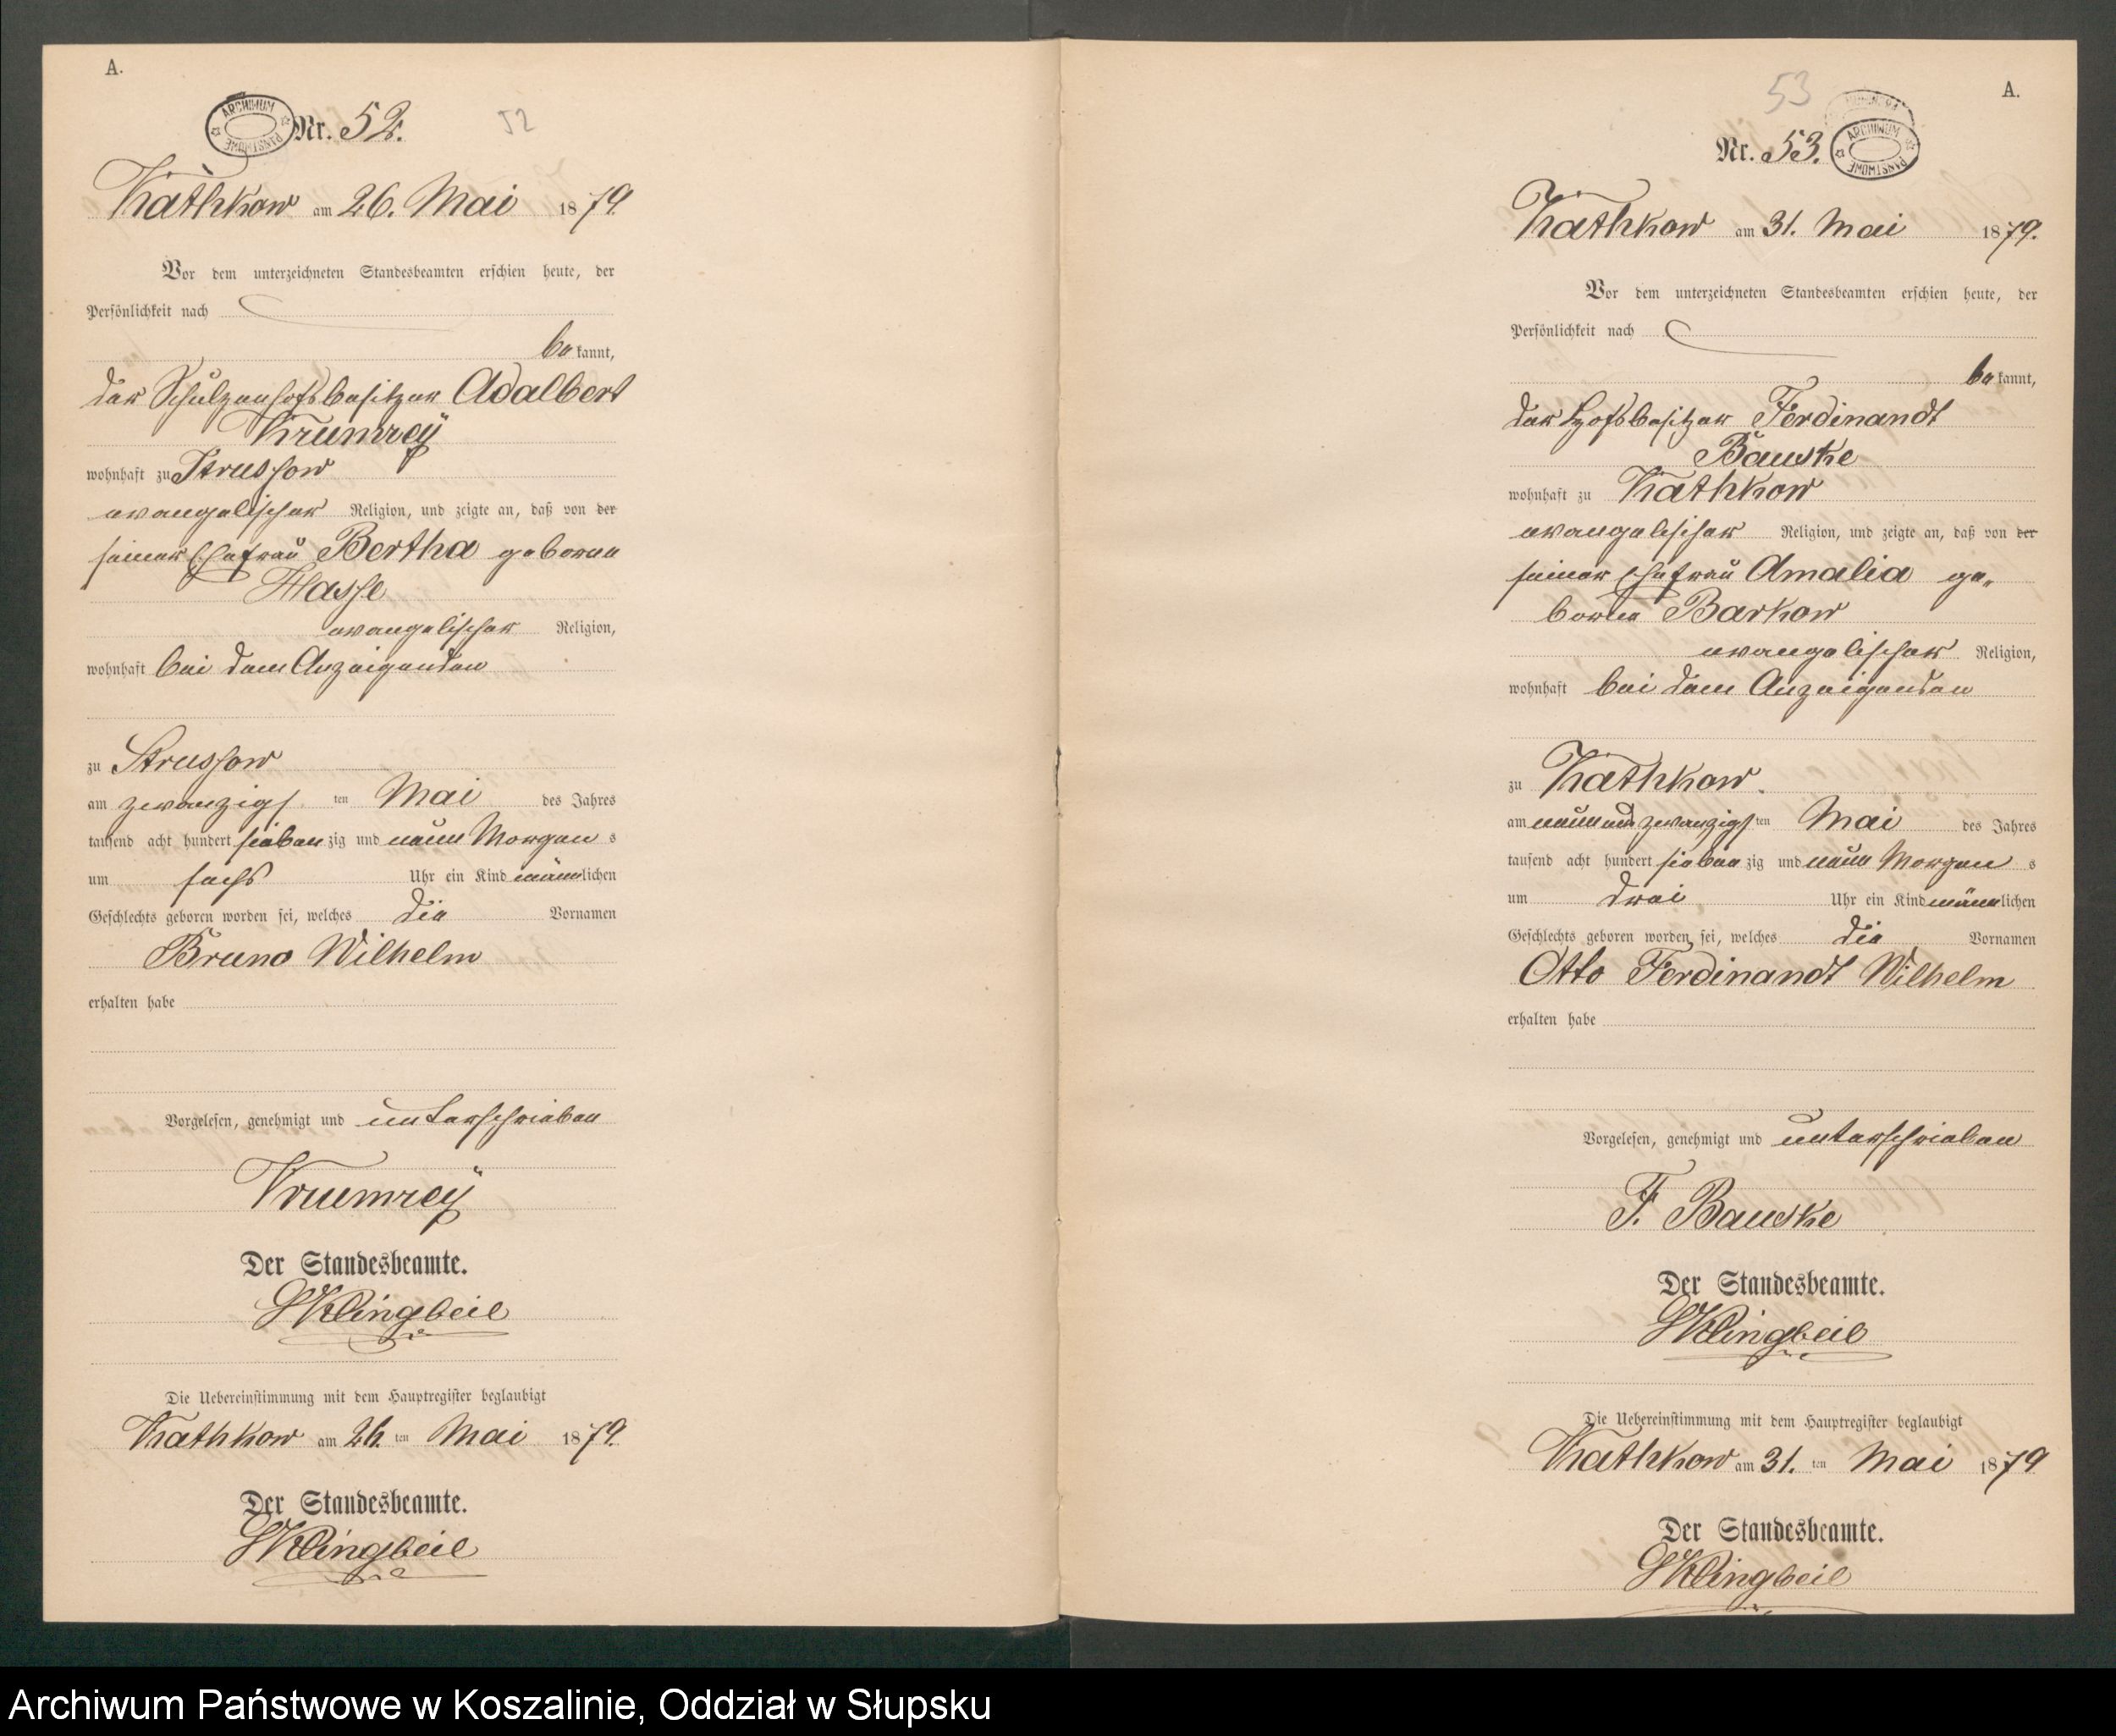 A.
ARCHIWUM PAŃSTWOWE
Nr. 52.
52
Kathkow am 26. Mai 1879.
Vor dem unterzeichneten Standesbeamten erschien heute, der
Persönlichkeit nach
bekannt,
der Schulzenhofsbesitzer Adalbert
Krumreÿ
wohnhaft zu Strussow
evangelischer Religion, und zeigte an, daß von der
seiner Ehefrau Bertha geboren
Hasse
evangelischer Religion,
wohnhaft bei dem Anzeigenden
zu Strussow
am zwanzigsten Mai des Jahres
tausend acht hundert siebenzig und neun Morgens
um sechs Uhr ein Kind männlichen
Geschlechts geboren worden sei, welches die Vornamen
Bruno Wilhelm
erhalten habe
Vorgelesen, genehmigt und unterschrieben
Krumreÿ
Der Standesbeamte.
Klingbeil
Die Uebereinstimmung mit dem Hauptregister beglaubigt
Kathkow am 26. ten Mai 1879.
Der Standesbeamte.
Klingbeil
53
A.
Nr. 53.
ARCHIWUM PAŃSTWOWE
Kathkow am 31. Mai 1879.
Vor dem unterzeichneten Standesbeamten erschien heute, der
Persönlichkeit nach
bekannt,
der Hofsbesitzer Ferdinandt
Bauske
wohnhaft zu Kathkow
evangelischer Religion, und zeigte an, daß von der
seiner Ehefrau Amalia ge-
borne Barkow
evangelischer Religion,
wohnhaft bei dem Anzeigenden
zu Kathkow.
am neunundzwanzigsten Mai des Jahres
tausend acht hundert siebenzig und neun Morgens
um drei Uhr ein Kind männlichen
Geschlechts geboren worden sei, welches die Vornamen
Otto Ferdinandt Wilhelm
erhalten habe
Vorgelesen, genehmigt und unterschrieben
F. Bauske
Der Standesbeamte.
Klingbeil
Die Uebereinstimmung mit dem Hauptregister beglaubigt
Kathkow am 31. ten Mai 1879
Der Standesbeamte.
Klingbeil
Archiwum Państwowe w Koszalinie, Oddział w Słupsku